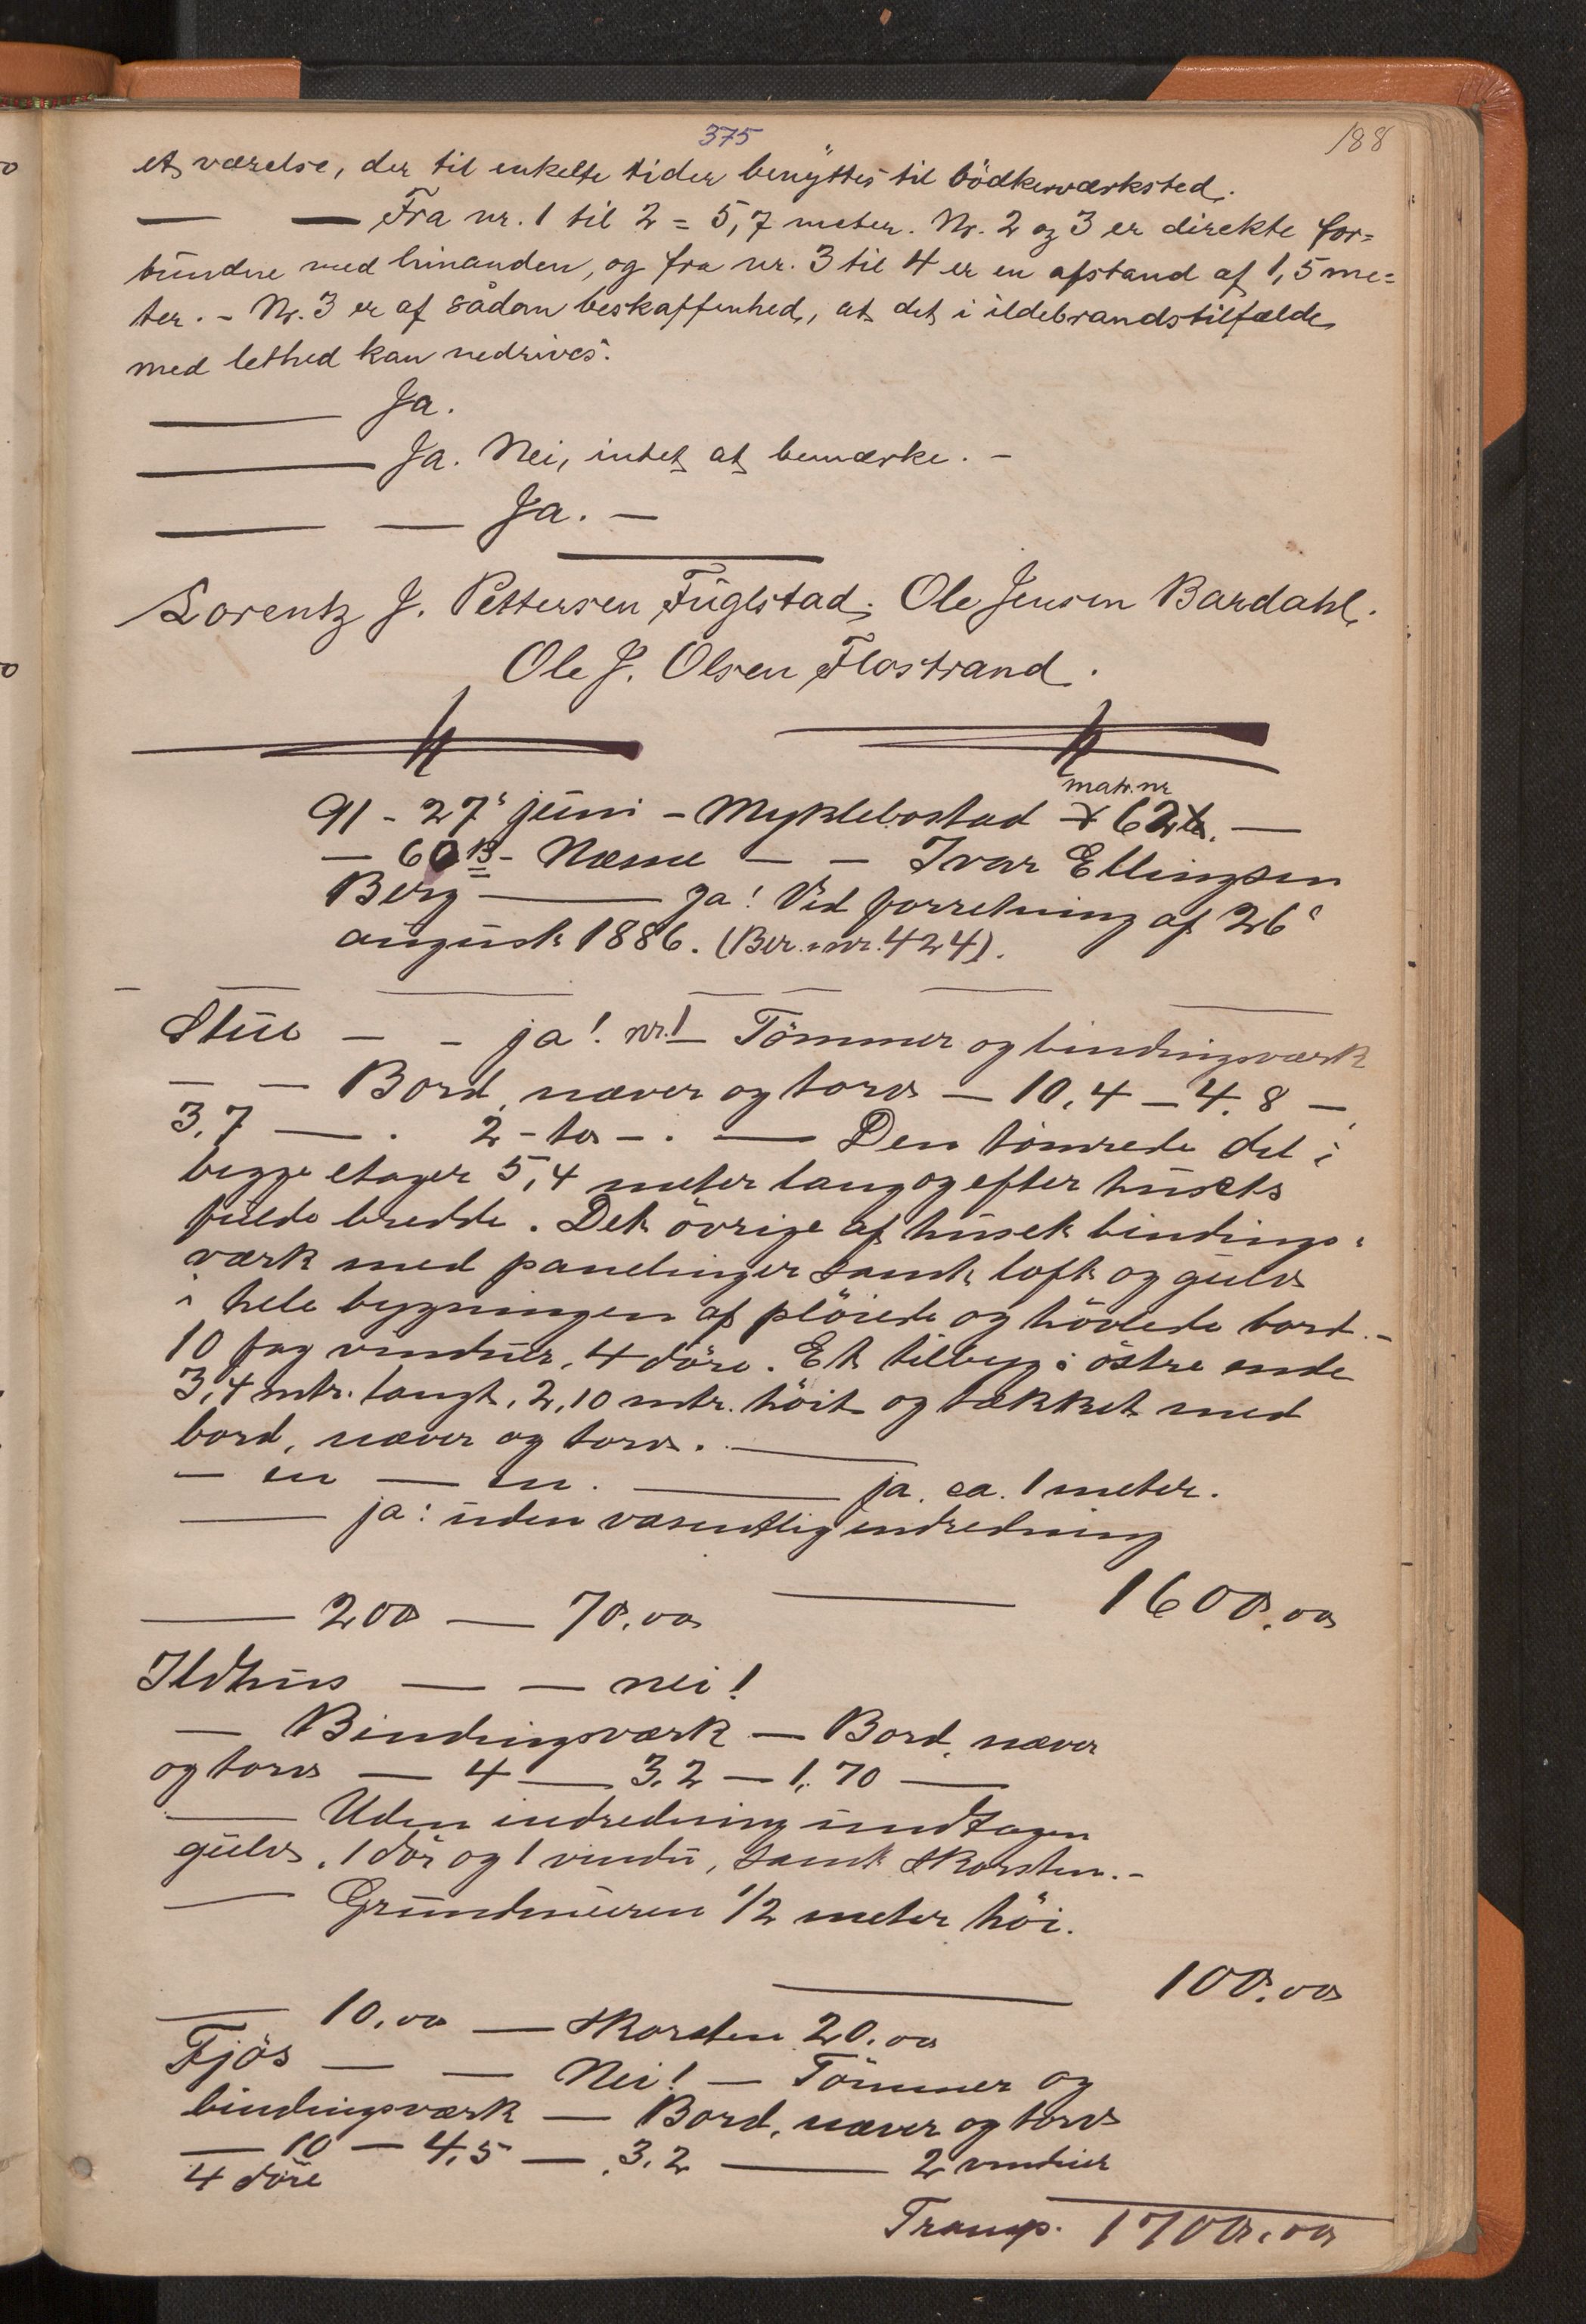 375
188
et værelse, der til enkelte tider benyttes til bödkerværksted.
— — Fra nr. 1 til 2 = 5,7 meter. Nr. 2 og 3 er direkte for=
bundne med hinanden, og fra nr. 3 til 4 er en afstand af 1,5 me=
ter. - Nr. 3 er af sådan beskaffenhed, at det i ildebrandstilfælde
med lethed kan nedrives.
— Ja.
— Ja. Nei, intet at bemærke. -
— — Ja. —
Lorentz J. Pettersen Fuglstad. Ole Jensen Bardahl.
Ole J. Olsen Flostrand.
matr. nr
91 - 27' juni - Myklebostad 62 —
— 60 B - Næsne — — Ivar Ellingsen
Berg — Ja! Ved forretning af 26'
august 1886. (Ber. nr. 424).
Stue — - ja! nr. 1 — Tömmer og bindingsværk
— — Bord, næver og torv — 10,4 — 4,8 —
3,7 — . 2 - to - . — Den tömrede del i
begge etager 5,4 meter lang og efter husets
fulde bredde. Det övrige af huset bindings=
værk med panelinger samt loft og gulv
i hele bygningen af plöiede og hövlede bord. -
10 fag vinduer, 4 döre. Et tilbyg i östre ende
3,4 mtr. langt, 2,10 mtr. höit og tækket med
bord, næver og torv. —
— en — en. — ja. ca. 1 meter.
— ja: uden væsentlig indredning
— 200 — 70.00 — 1600.00
Ildhus — — nei!
— Bindingsværk — Bord, næver
og torv — 4 — 3.2 — 1.70 —
— Uden indredning undtagen
gulv, 1 dör og 1 vindu, samt skorsten. -
— Grundmuren 1/2 meter höi.
— 100.00
— 10.00 — Skorsten 20.00
Fjös — — Nei! — Tömmer og
bindingsværk — Bord, næver og torv
— 10 — 4,5 — 3.2 — 2 vinduer
4 döre
Transp. 1700.00